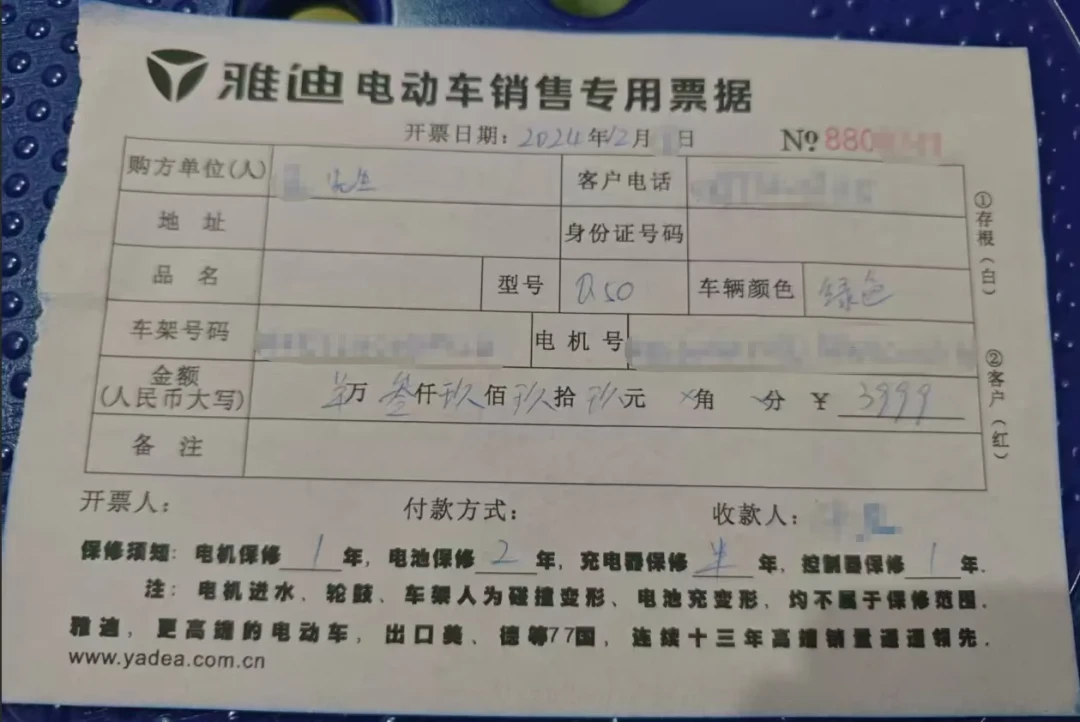 雅迪电动车销售专用票据
开票日期：2024年12月 日 № 880
购方单位(人) 先生 客户电话
地 址 身份证号码
品 名 型号 Q50 车辆颜色 绿色
车架号码 电机号
金额
(人民币大写) 万叁仟玖佰玖拾玖元 角 分 ￥3999
备 注
①存根（白）
②客户（红）
开票人： 付款方式： 收款人：
保修须知：电机保修1年，电池保修2年，充电器保修半年，控制器保修1年.
注：电机进水、轮鼓、车架人为碰撞变形、电池充变形，均不属于保修范围.
雅迪，更高端的电动车，出口美、德等77国，连续十三年高端销量遥遥领先.
www.yadea.com.cn